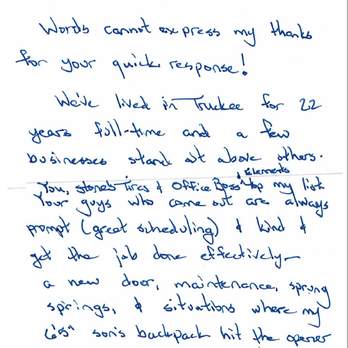 Words cannot express my thanks
for your quick response!
We've lived in Truckee for 22
years full-time and a few
businesses stand out above others.
Elements
You, Stone's Tires & Office Boss top my list
Your guys who come out are always
prompt (great scheduling) & kind &
get the job done effectively—
a new door, maintenance, sprung
springs, & situations where my
6'5" son's backpack hit the opener